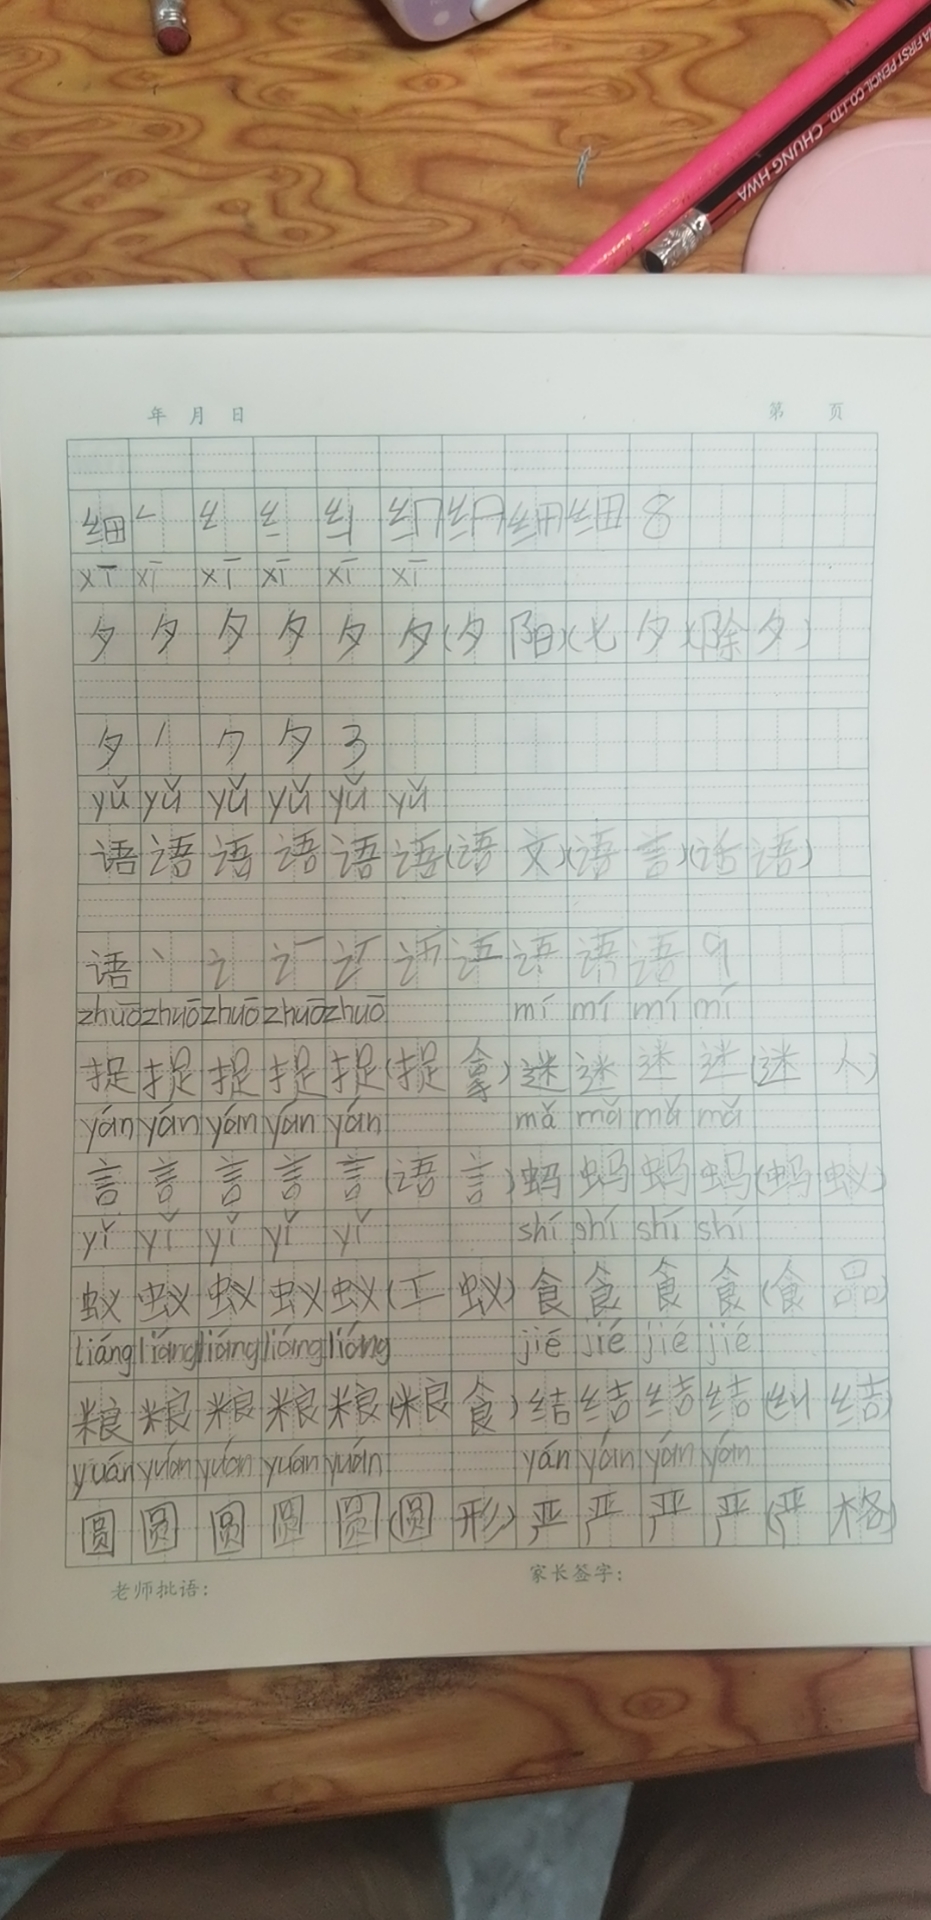 CHINA FIRST PENCIL CO.LTD CHUNG HWA
年 月 日 第 页
细 纟 纟 细 细 8
xī xī xī xī xī xī
夕 夕 夕 夕 夕 夕(夕阳)(七夕)(除夕)
夕 丿 ク 夕 3
yǔ yǔ yǔ yǔ yǔ yǔ
语 语 语 语 语 语(语文)(语言)(话语)
语 丶 讠 语 语 语 9
zhuō zhuō zhuō zhuō zhuō mí mí mí mí
捉 捉 捉 捉 捉(捉拿) 迷 迷 迷 迷(迷人)
yán yán yán yán yán mǎ mǎ mǎ mǎ
言 言 言 言 言(语言) 蚂 蚂 蚂 蚂(蚂蚁)
yǐ yǐ yǐ yǐ yǐ shí shí shí shí
蚁 蚁 蚁 蚁 蚁(工蚁) 食 食 食 食(食品)
liáng liáng liáng liáng liáng jié jié jié jié
粮 粮 粮 粮 粮(粮食) 结 结 结 结(纠结)
yuán yuán yuán yuán yuán yán yán yán yán
圆 圆 圆 圆 圆(圆形) 严 严 严 严(严格)
老师批语: 家长签字: